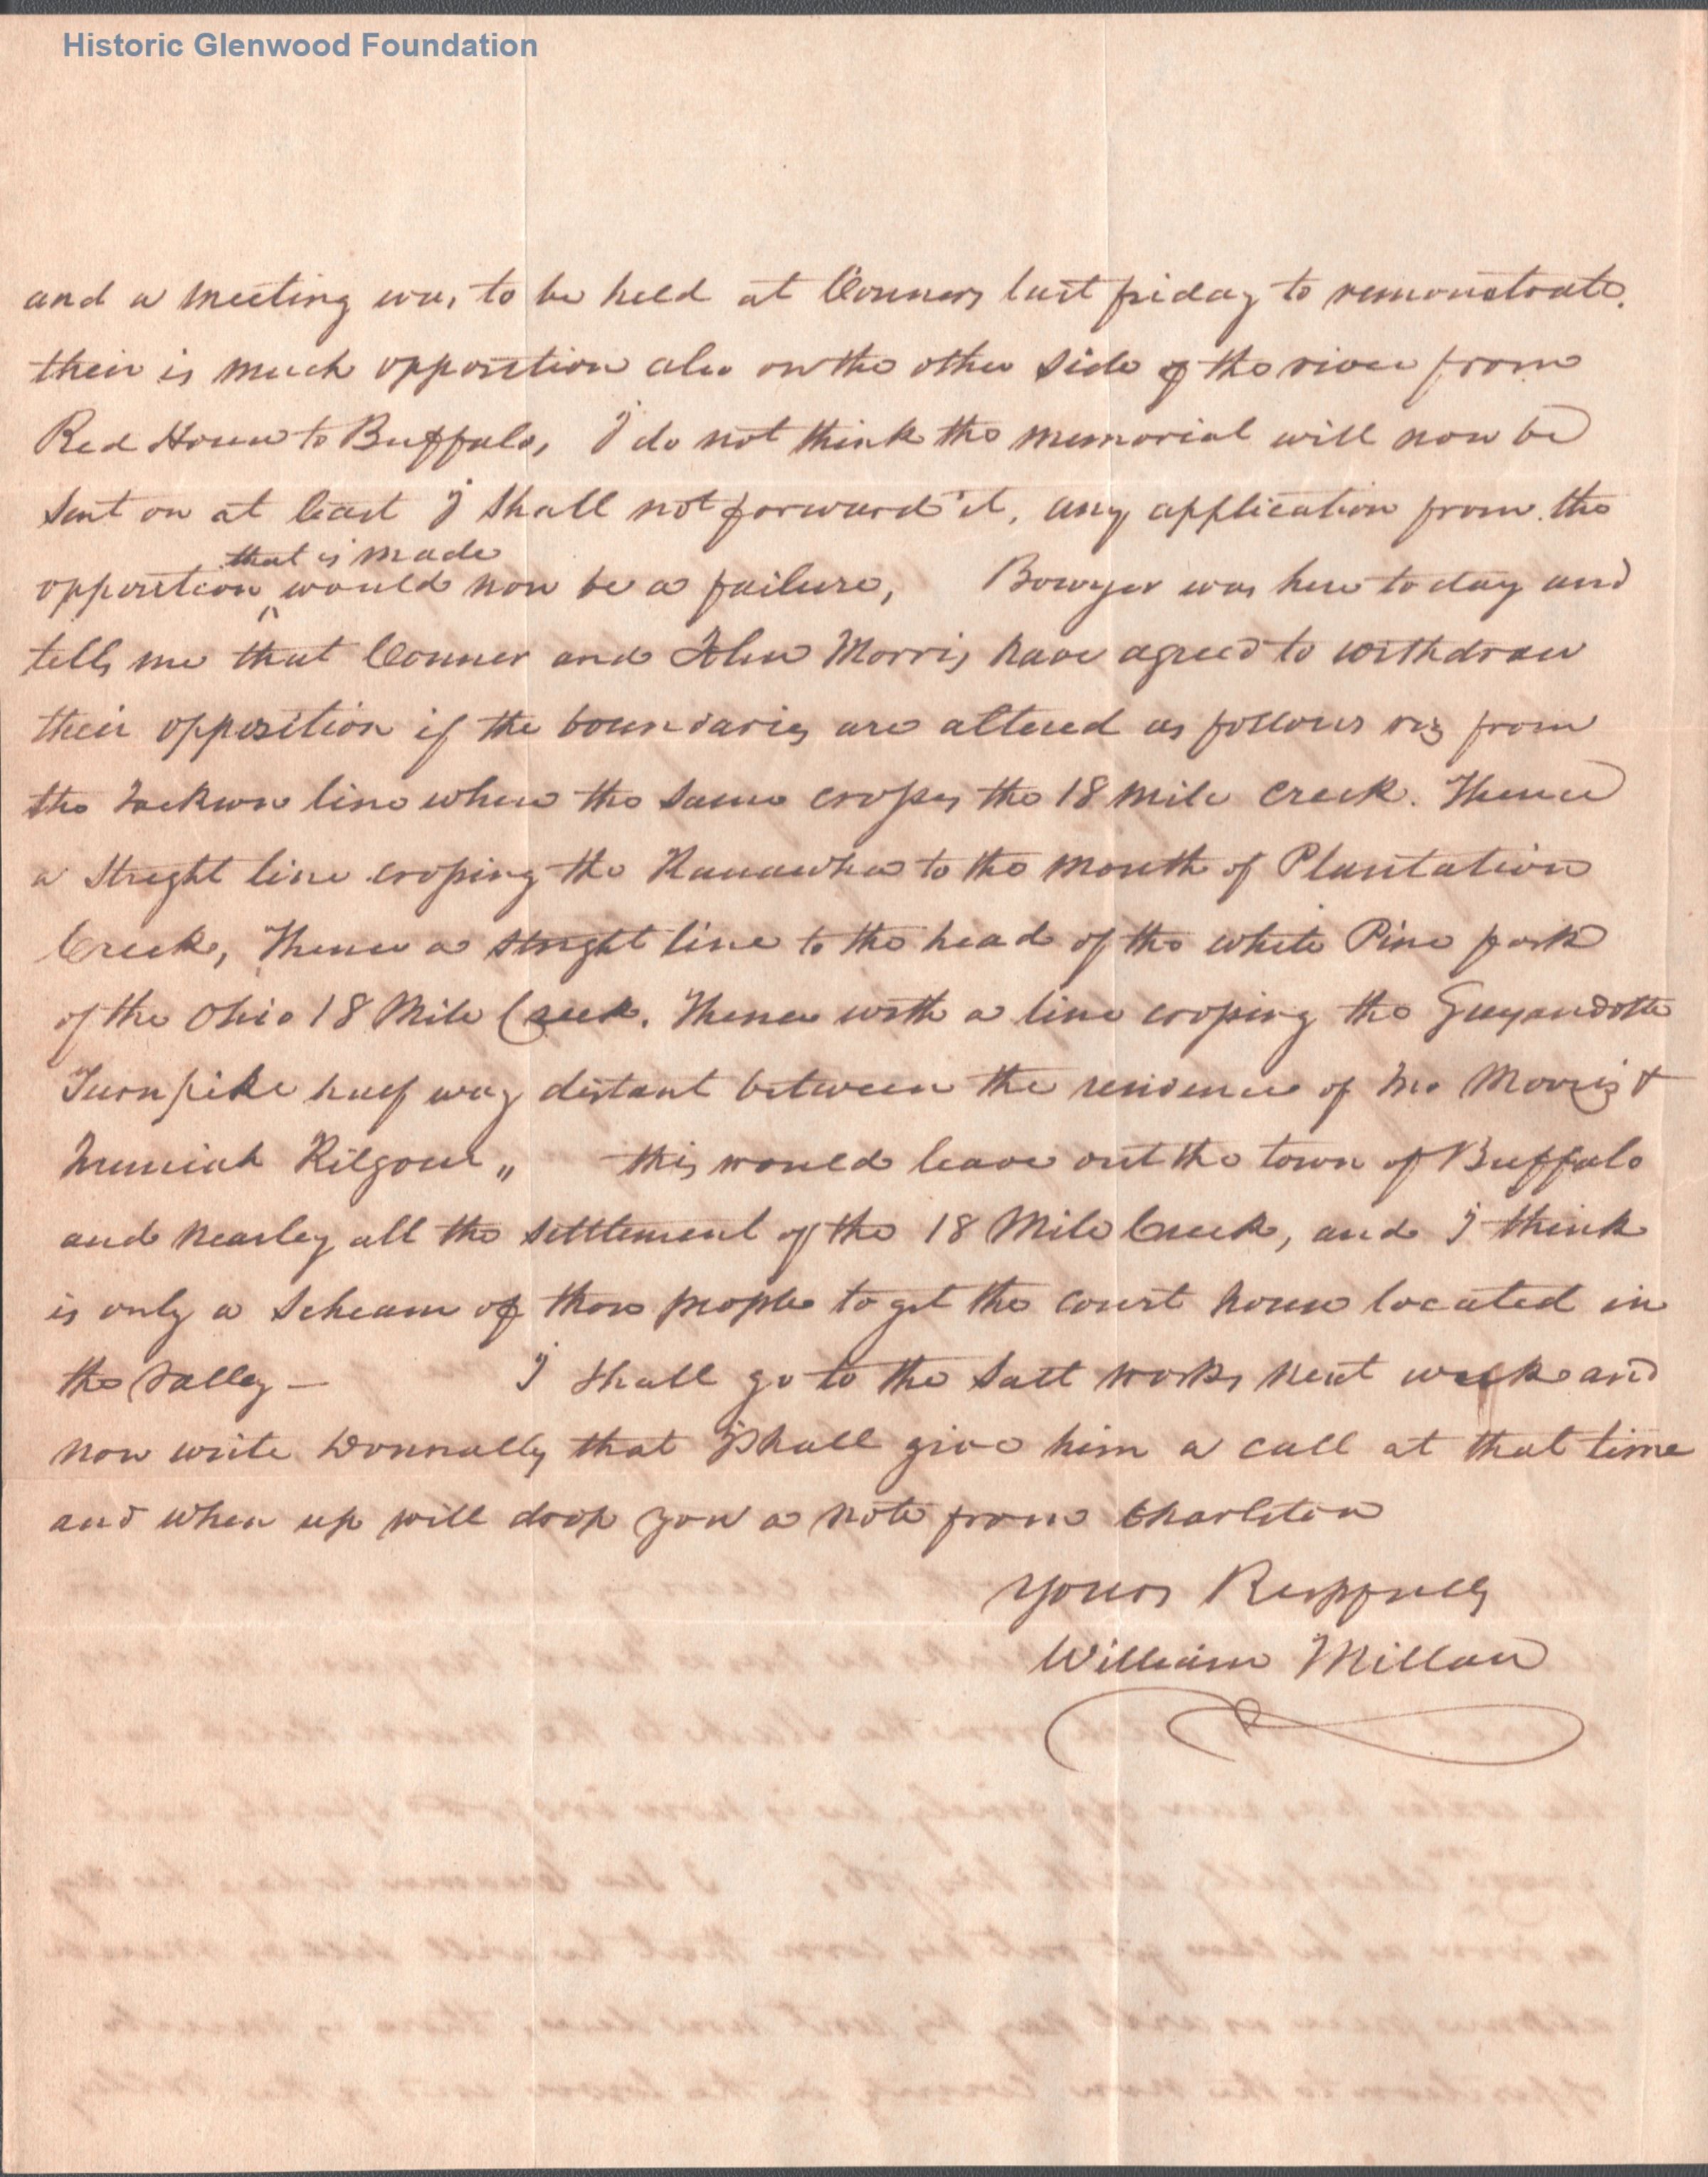 Historic Glenwood Foundation
and a meeting was to be held at Conners last friday to remonstrate.
their is much opposition also on the other side of the river from
Red House to Buffalo, I do not think the memorial will now be
sent on at least I shall not forward it, any application from the
that is made
opposition ^ would now be a failure, Bowyer was here to day and
tells me that Conner and John Morris have agreed to withdraw
their opposition if the boundaries are altered as follows viz from
the Jackson line where the same crosses the 18 mile creek. Thence
a streght line crossing the Kanawha to the mouth of Plantation
Creek, Thence a streght line to the head of the white Pine fork
of the Ohio 18 Mile Creek. Thence with a line crossing the Guyandotte
Turnpike half way distant between the residence of Morris &
Jeremiah Kilgour „ this would leave out the town of Buffalo
and nearley all the settlement of the 18 Mile Creek, and I think
is only a scheam of those people to get the court house located in
the valley —  I shall go to the salt works next week and
now write Donnally that I shall give him a call at that time
and when up will drop you a note from Charlston
Yours Respfully
William Millan